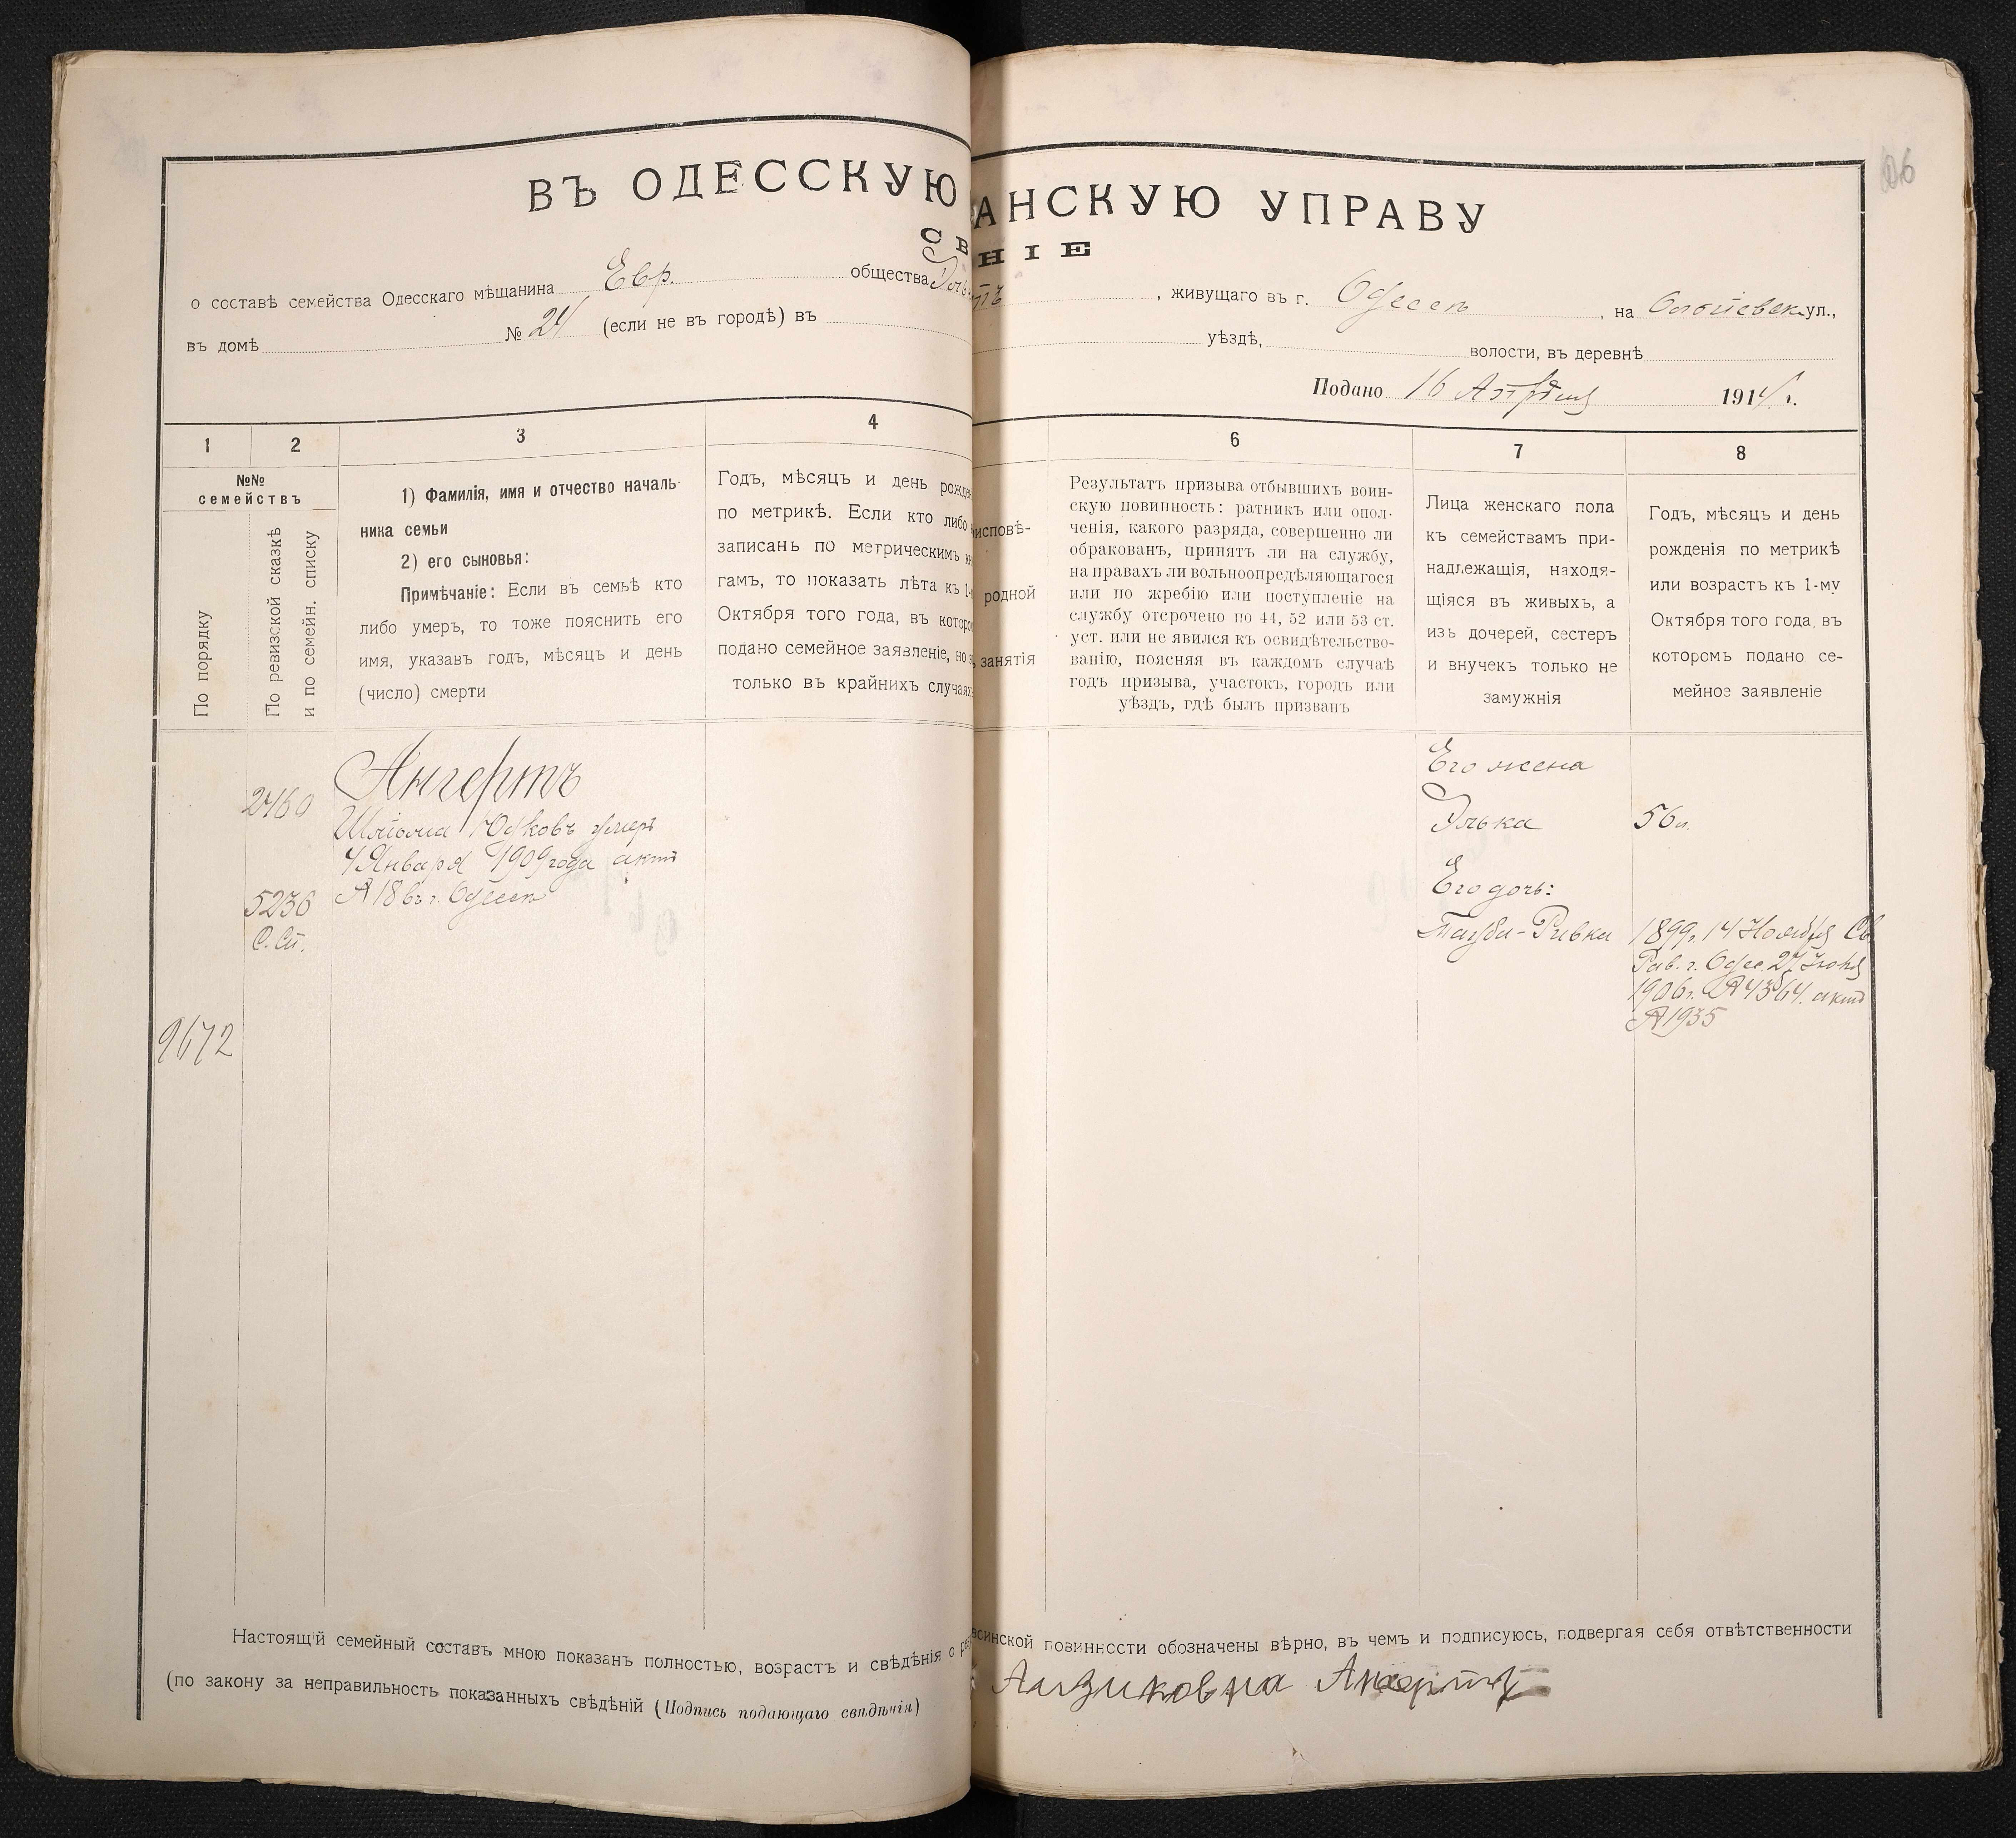 106
ВЪ ОДЕССКУЮ АНСКУЮ УПРАВУ
СВ НІЕ
о составѣ семейства Одесскаго мѣщанина Евр. общества , живущаго въ г. Одессѣ , на ул.,
въ домѣ № 24 (если не въ городѣ) въ уѣздѣ, волости, въ деревнѣ
Подано 16 1914 г.
1 2 3 4 6 7 8
№№
семействъ
По порядку
По ревизской сказкѣ
и по семейн. списку
1) Фамилія, имя и отчество началь-
ника семьи
2) его сыновья:
Примѣчаніе: Если въ семьѣ кто
либо умеръ, то тоже пояснить его
имя, указавъ годъ, мѣсяцъ и день
(число) смерти
Годъ, мѣсяцъ и день рожден
по метрикѣ. Если кто либо
записанъ по метрическимъ кн
гамъ, то показать лѣта къ 1-
Октября того года, въ которо
подано семейное заявленіе, но
только въ крайнихъ случаях
исповѣ-
родной
занятія
Результатъ призыва отбывшихъ воин-
скую повинность: ратникъ или опол-
ченія, какого разряда, совершенно ли
обракованъ, принятъ ли на службу,
на правахъ ли вольноопредѣляющагося
или по жребію или поступленіе на
службу отсрочено по 44, 52 или 53 ст.
уст. или не явился къ освидѣтельство-
ванію, поясняя въ каждомъ случаѣ
годъ призыва, участокъ, городъ или
уѣздъ, гдѣ былъ призванъ
Лица женскаго пола
къ семействамъ при-
надлежащія, находя-
щіяся въ живыхъ, а
изъ дочерей, сестеръ
и внучекъ только не
замужнія
Годъ, мѣсяцъ и день
рожденія по метрикѣ
или возрастъ къ 1-му
Октября того года, въ
которомъ подано се-
мейное заявленіе
9672
2460
5236
С. Сп.
Ангертъ
Шліома Юдковъ умеръ
4 Января 1909 года актъ
№ 18 въ г. Одессѣ
Его жена
Элька 56 л.
Его дочь:
Тауба-Ривка
1899 г. 14 Ноября Св.
Рав. г. Одес. 27
1906 г. № 4364. актъ
№ 1935
Настоящій семейный составъ мною показанъ полностью, возрастъ и свѣдѣнія о воинской повинности обозначены вѣрно, въ чемъ и подписуюсь, подвергая себя отвѣтственности
(по закону за неправильность показанныхъ свѣдѣній (Подпись подающаго свѣдѣнія)
Айзиковна Ангертъ